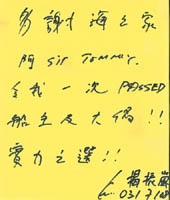 多謝大海之家
阿 Sir Tommy.
令我一次 PASSED
船主及大偈!!
實力之選!!
楊振嵐